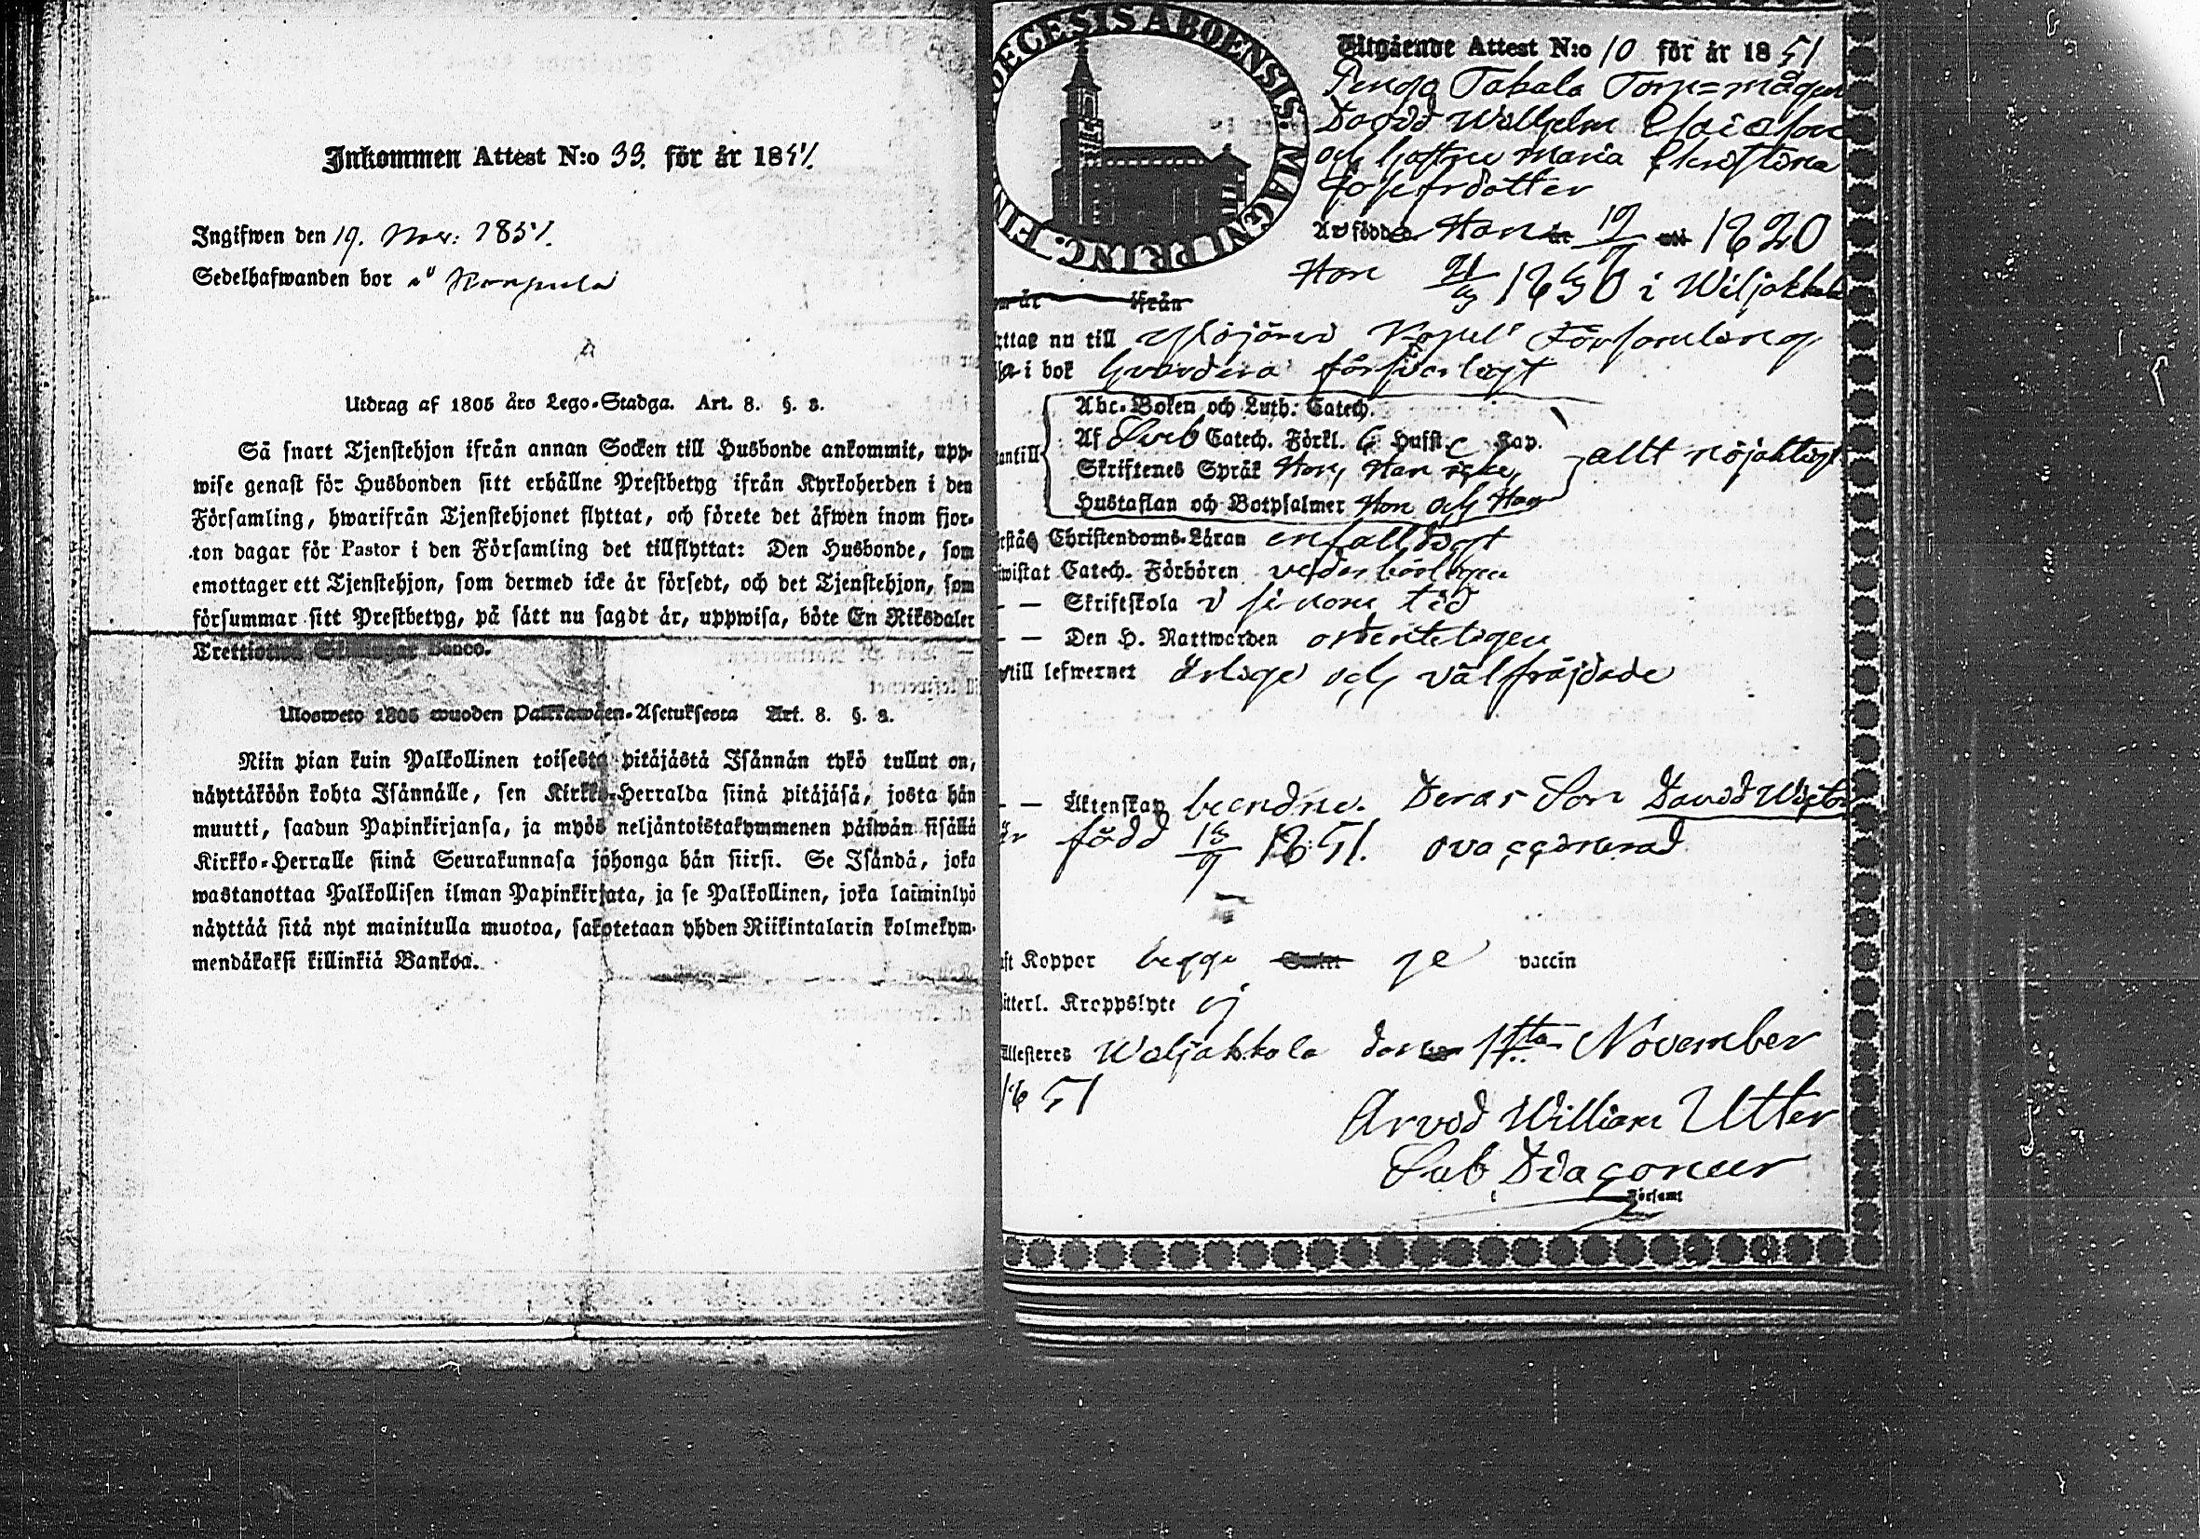 Inkommen Attest N:o 33. för år 1851.
Ingifwen den 19. Nov: 1851.
Sedelhafwanden bor
Utdrag af 1805 års Lego-Stadga. Art. 8. §. 3.
Så snart Tjenstehjon ifrån annan Socken till Husbonde ankommit, upp-
wise genast för Husbonden sitt erhållne Prestbetyg ifrån Kyrkoherden i den
Församling, hwarifrån Tjenstehjonet flyttat, och förete det äfwen inom fjor-
ton dagar för Pastor i den Församling det tillflyttat: Den Husbonde, som
emottager ett Tjenstehjon, som dermed icke är försedt, och det Tjenstehjon, som
försummar sitt Prestbetyg, på sätt nu sagdt är, uppwisa, böte En Riksdaler
Trettiotwå Skillingar Banco.
Ulosweto 1805 wuoden Palkkawäen-Asetuksesta Art. 8. §. 3.
Niin pian kuin Palkollinen toisesta pitäjästä Isännän tykö tullut on,
näyttäköön kohta Isännälle, sen Kirkko-Herralda siinä pitäjäsä, josta hän
muutti, saadun Papinkirjansa, ja myös neljäntoistakymmenen päiwän sisällä
Kirkko-Herralle siinä Seurakunnasa johonga hän siirsi. Se Isändä, joka
wastanottaa Palkollisen ilman Papinkirjata, ja se Palkollinen, joka laiminlyö
näyttää sitä nyt mainitulla muotoa, sakotetaan yhden Riikintalarin kolmekym-
mendäkaksi killinkiä Bankoa.
DIECESIS ABOENSIS. MAGNI PRINC. FIN
Utgående Attest N:o 10 för år 1851
Torp=mågen
David Wilhelm Esaiason
och hustru Maria Christina
Josefsdotter
Är födde Han 19/9 1820
Hon 1830 i Wiljakkala
ttar nu till Kapell Församling
i bok hvardera försvarligt
Abc-Boken och Luth: Catech.
Af Sveb Catech. Förkl. 6 Hufst. Kap.
antill Skriftenes Språk Hon, Han icke, allt nöjaktigt
Hustaflan och Botpsalmer Hon och Han
rstå Christendoms-Läran enfalldigt
wistat Catech. Förhören vederbörligen
– – Skriftskola i sinom tid
– – Den H. Nattwarden ordenteligen
till lefwernet ärlige och välfräjdade
– – Äktenskap bundne. Deras Son David Wictor
är född 18/9 1851. ovaccinerad
ft Koppor begge ge vaccin
itterl. Kroppslyte ej
Attesteres Wiljakkala den 1sta November
1851
Arvid William Utter
Sub Diaconus
Församl